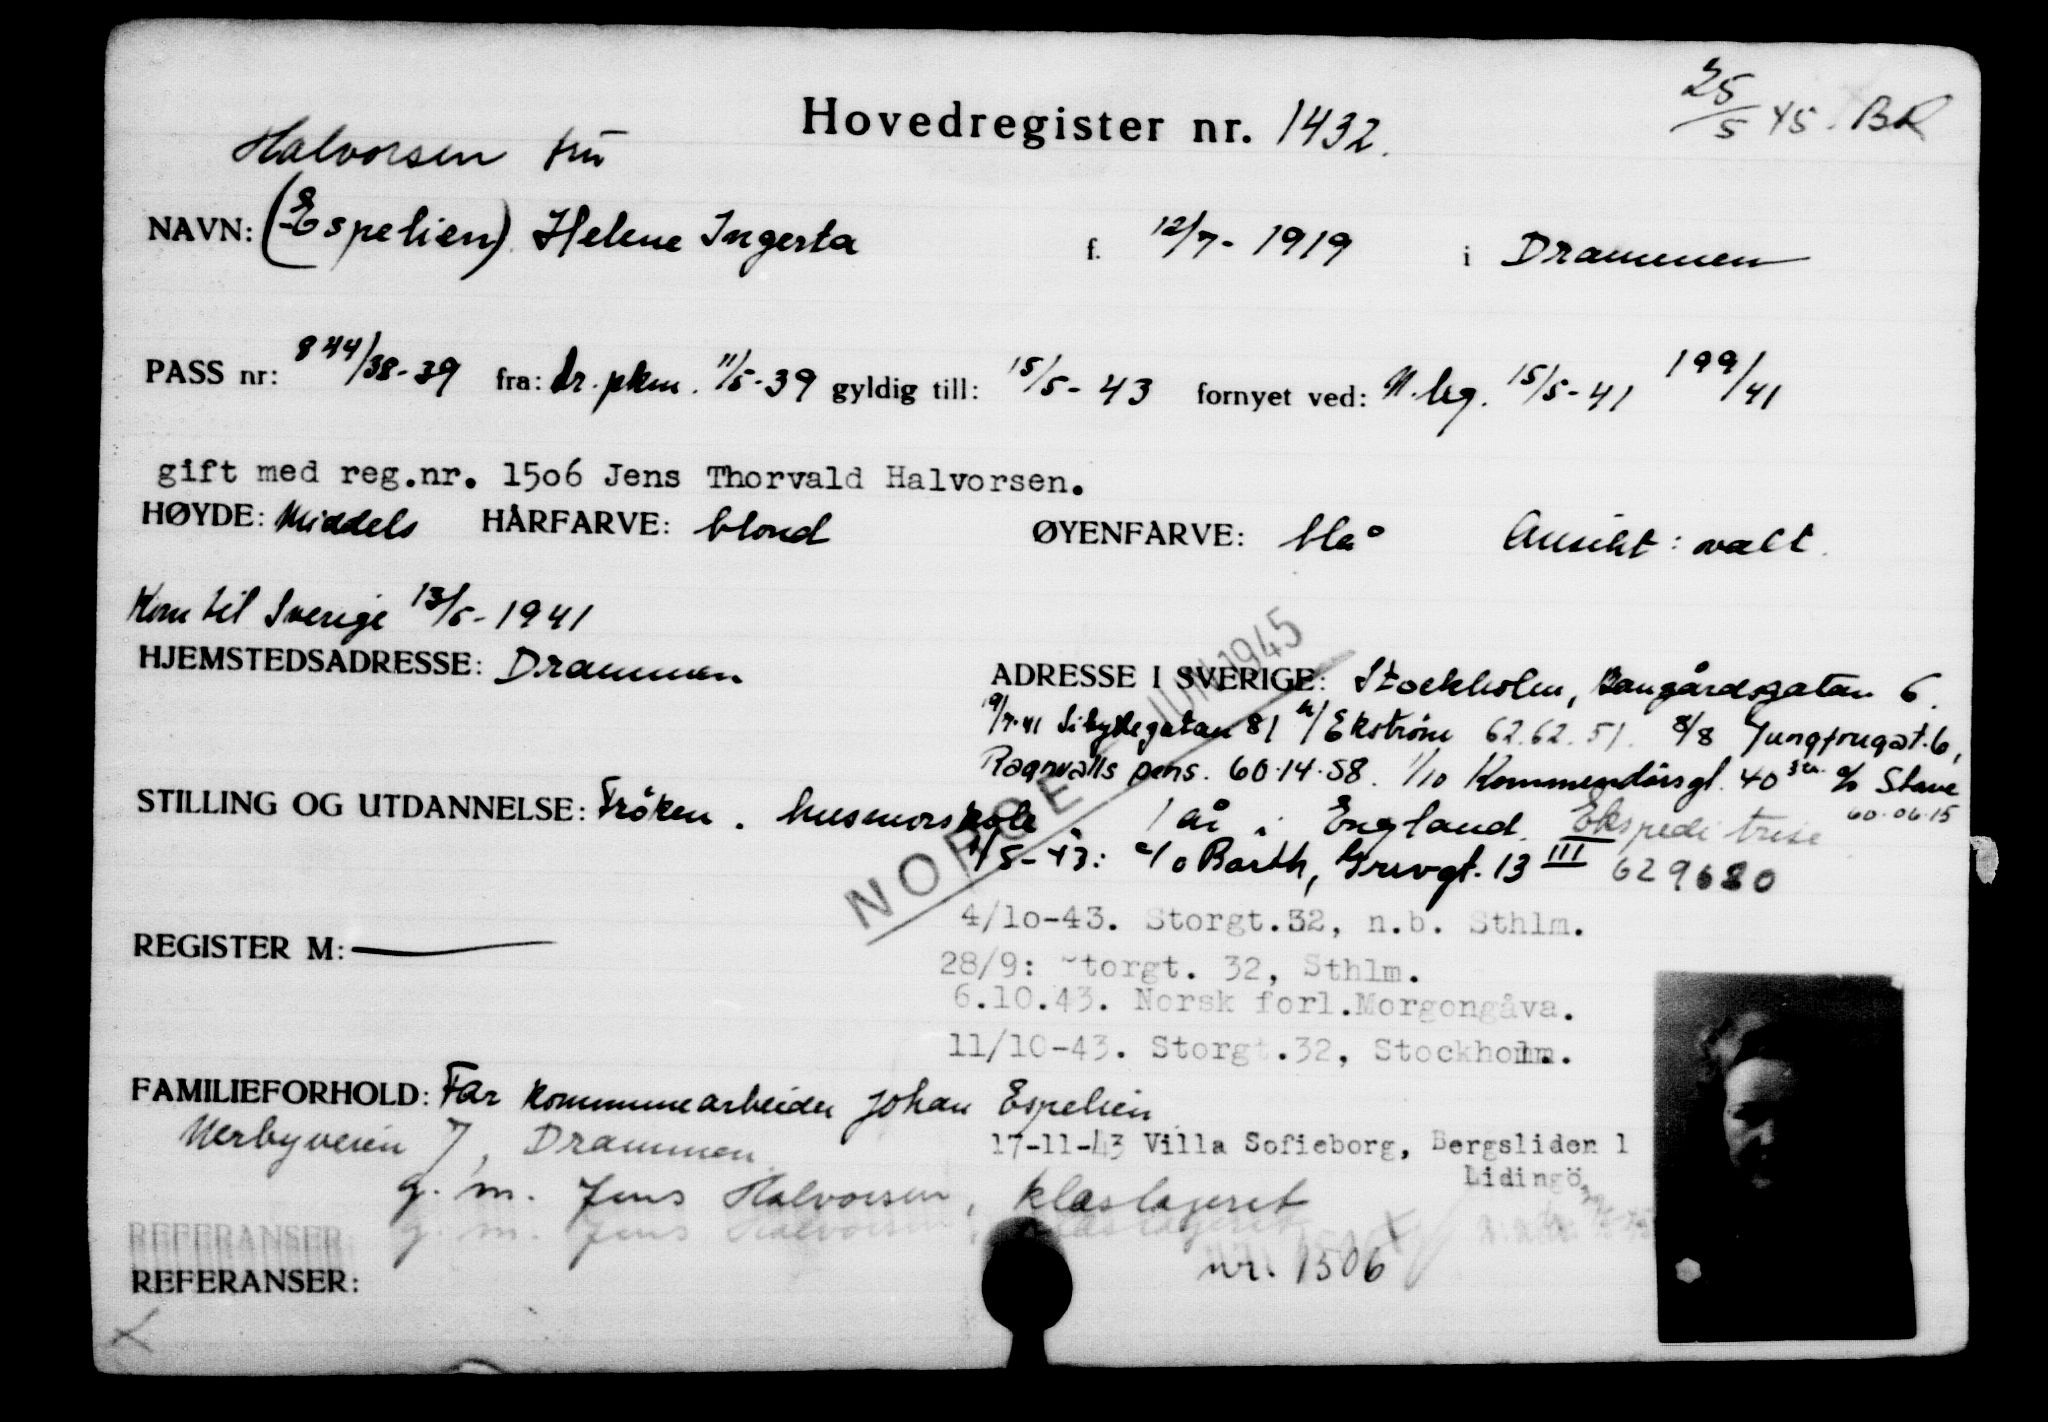 Hovedregister nr. 1432.
25/5 45. BR
Halvorsen fru
NAVN: (Espelien) Helene Ingerta f. 12/7- 1919 i Drammen
PASS nr: 844/38-39 fra: Dr. pkm. 11/5-39 gyldig till: 15/5-43 fornyet ved: N. leg. 15/5-41 199/41
gift med reg.nr. 15o6 Jens Thorvald Halvorsen.
HØYDE: Middels HÅRFARVE: blond ØYENFARVE: blå Ansikt: ovalt.
Kom til Sverige 13/5-1941
JUNI 1945
HJEMSTEDSADRESSE: Drammen ADRESSE I SVERIGE: Stockholm, Bangårdsgatan 6.
9/7-41 Sibyllegatan 81 Ekstrøm 62.62.51. 8/8 Jungfrugat. 6,
Ragnvalls pens. 60.14.58. 1/10 Kommendörsgt. 40 c/o Stave
60.06.15
STILLING OG UTDANNELSE: Frøken. husmorskole. 1 år i England. Ekspeditrise
/5-43: c/o Barth, Gruvgt. 13 III 629680
NORGE
4/1o-43. Storgt.32, n.b. Sthlm.
REGISTER M: —
28/9: Storgt. 32, Sthlm.
6.10.43. Norsk forl.Morgongåva.
11/10-43. Storgt.32, Stockholm.
FAMILIEFORHOLD: Far kommunearbeider Johan Espelien
Nerbyveien 7, Drammen
17-11-43 Villa Sofieborg, Bergsliden 1
Lidingö
g. m. Jens Halvorsen, klaslageret
g. m. Jens Halvorsen
REFERANSER
nr. 1506
REFERANSER: